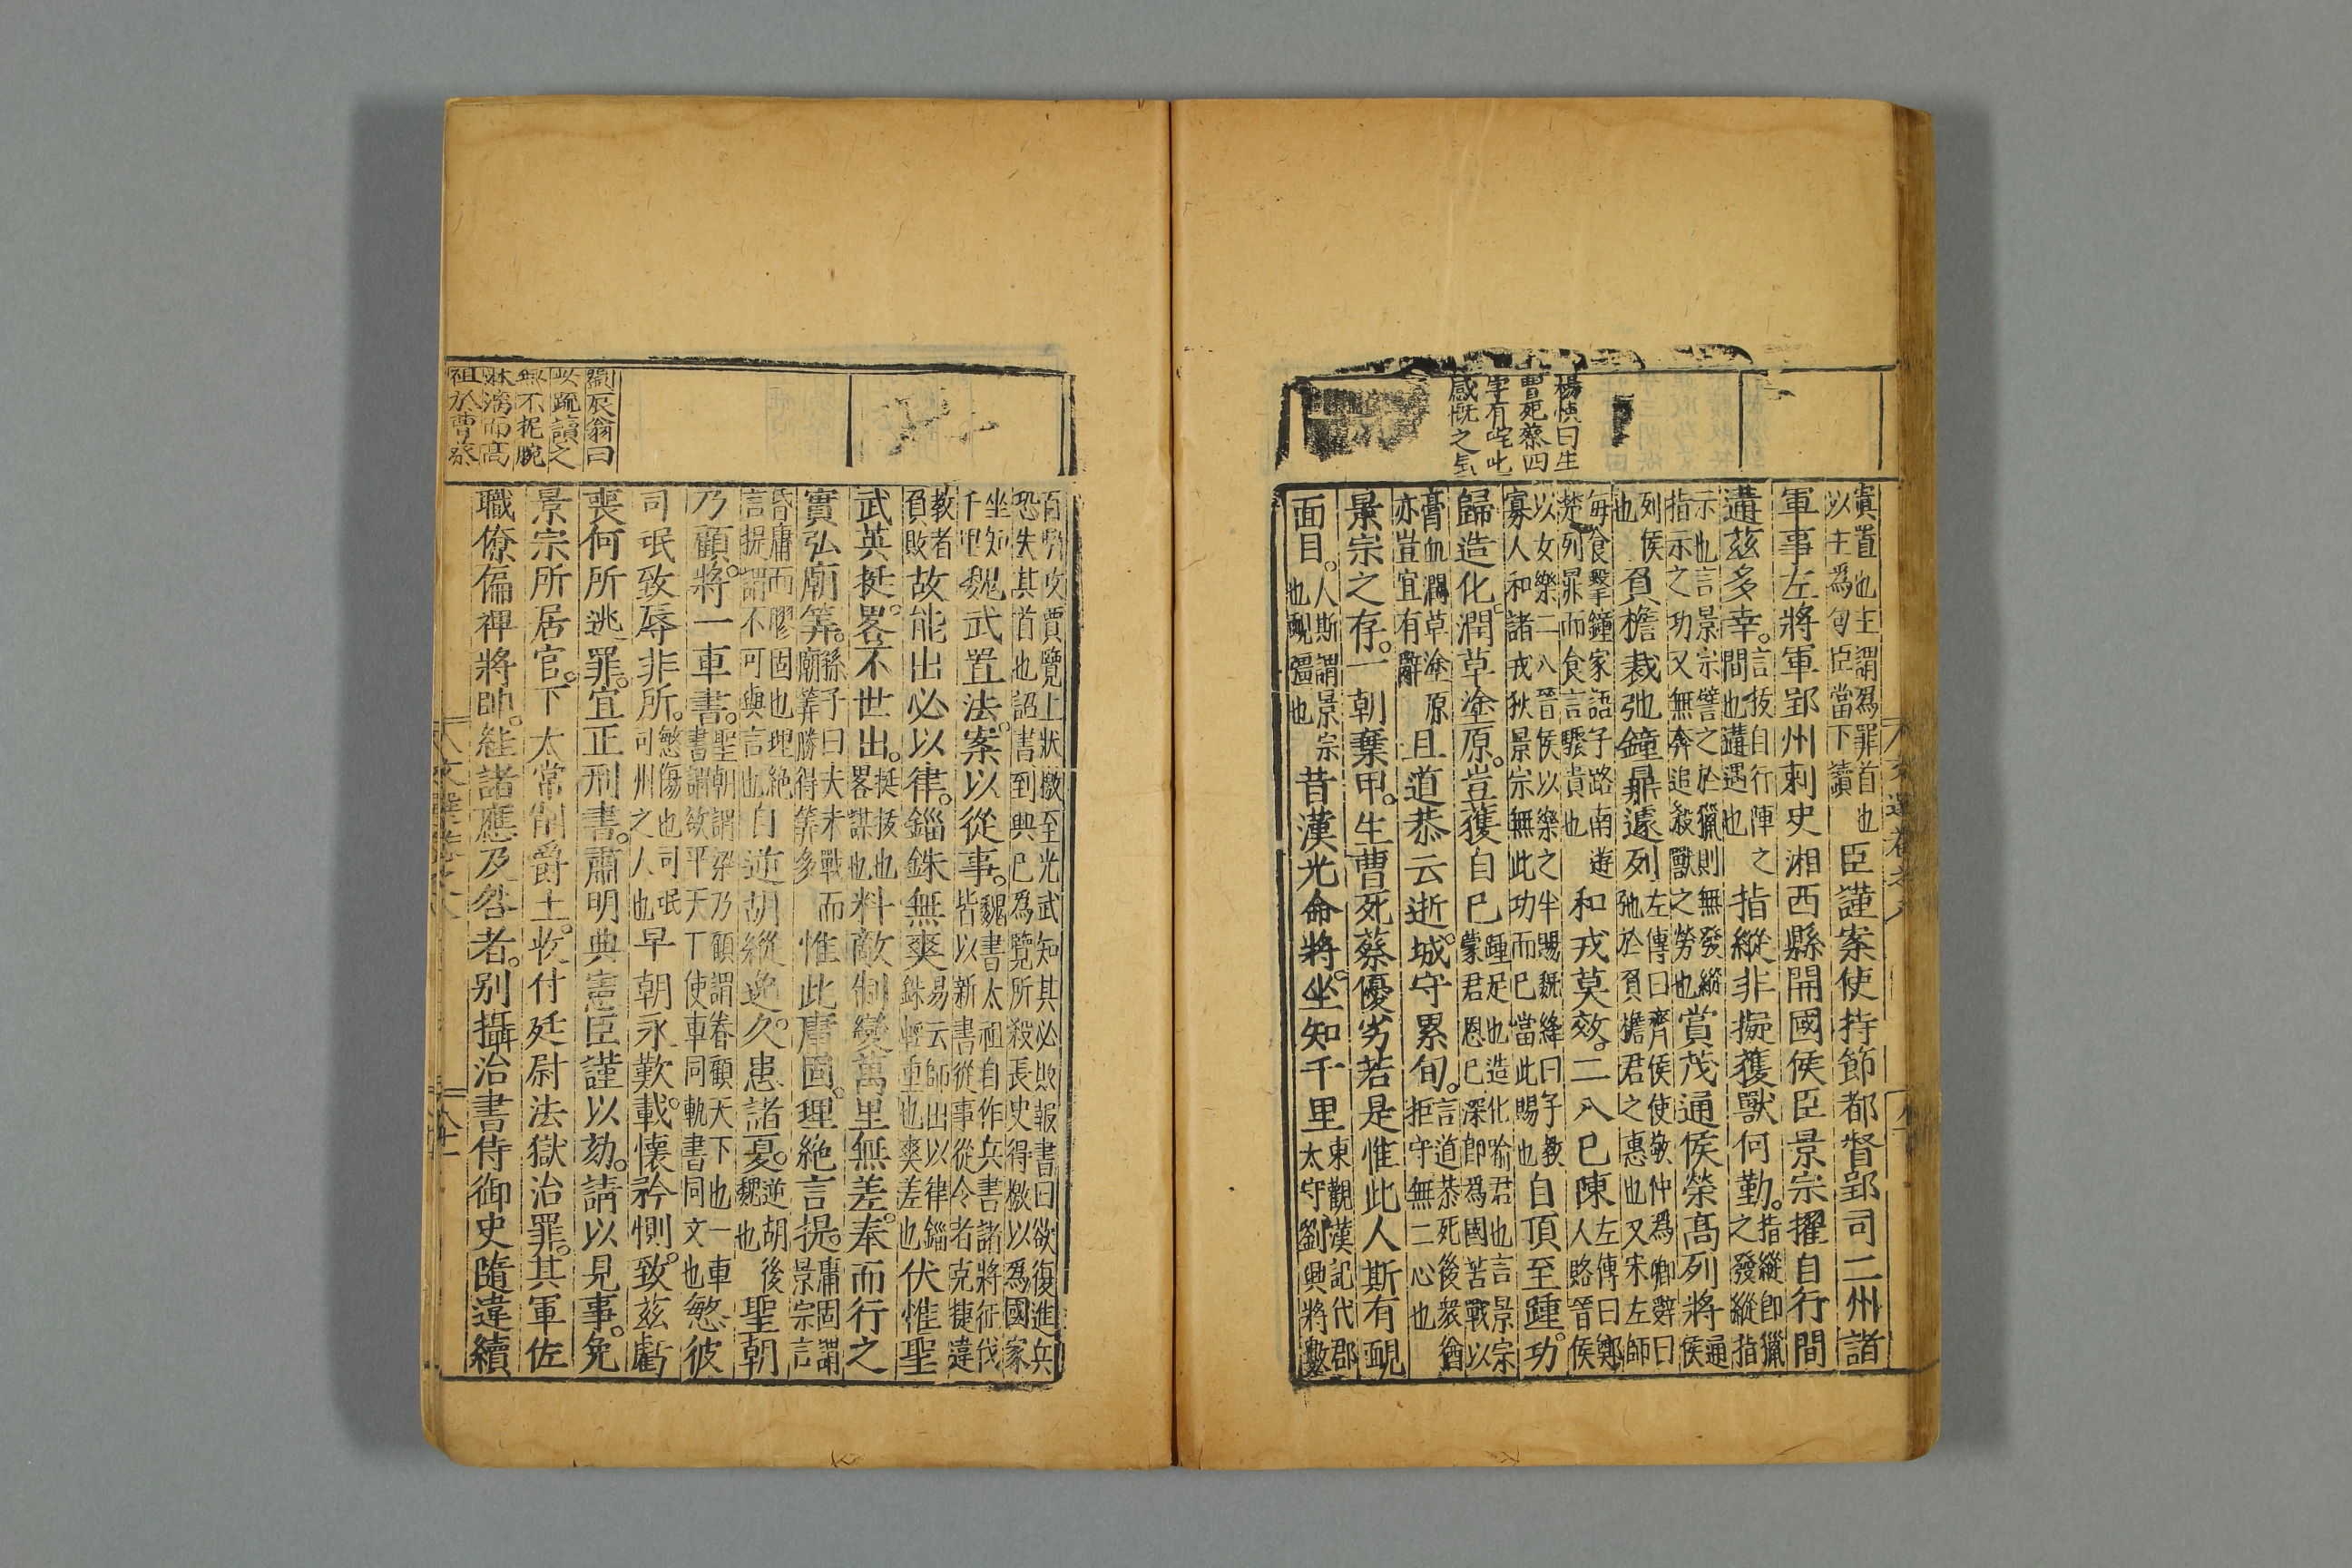 楊慎曰生
曹死蔡四
字有咤叱
感慨之氣
寘置也主謂爲罪首也
以主爲句臣當下讀
臣謹案使持節都督郢司二州諸
軍事左將軍郢州刺史湘西縣開國侯臣景宗擢自行間
遘茲多幸。
言拔自行陣之
間也遘遇也
指縱非擬獲獸何勤。
指縱卽獵
之發縱指
示也言景宗譬之於獵則無發縱
指示之功又無奔追殺獸之勞也
賞茂通侯榮高列將
通
侯
列侯
也
負檐裁弛鐘鼎遽列
左傳曰齊侯使敬仲爲卿辭曰
弛於負檐君之惠也又宋左師
每食擊鐘家語子路南遊
楚列鼎而食言驟貴也
和戎莫效。二八已陳
左傳曰鄭
人賂晉侯
以女樂二八晉侯以樂之半賜魏絳曰子敎
寡人和諸戎狄景宗無此功而已當此賜也
自頂至踵。功
歸造化。潤草塗原。豈獲自巳
踵足也造化喻君也言景宗
蒙君恩巳深卽爲國苦戰以
膏血潤草塗原
亦豈宜有辭
且道恭云逝。城守累旬。
言道恭死後衆猶
拒守無二心也
景宗之存。一朝棄甲。生曹死蔡優劣若是惟此人斯有靦
面目。
人斯謂景宗
也靦彊也
昔漢光命將。坐知千里
東觀漢記代郡
太守劉興將數
百騎攻賈覽上狀檄至光武知其必敗報書曰欲復進兵
恐失其首也詔書到興已爲覽所殺長史得檄以爲國家
坐知
千里
魏武置法。案以從事。
魏書太祖自作兵書諸將征伐
皆以新書從事從令者克捷違
敎者
負敗
故能出必以律。錙銖無爽
易云師出以律錙
銖輕重也爽差也
伏惟聖
武英挺。畧不世出。
挺拔也
畧謀也
料敵制變萬里無差。奉而行之
實弘廟筭。
孫子曰夫未戰而
廟筭勝得筭多
惟此庸固。理絶言提。
庸固謂
景宗言
昏庸而膠固也理絶
言提謂不可與言也
自逆胡縱逸久。患諸夏。
逆胡後
魏也
聖朝
乃顧。將一車書。
聖朝謂梁乃顧謂眷顧天下也一車
書謂欲平天下使車同軌書同文也
慜彼
司氓致辱非所。
慜傷也司氓
司州之人也
早朝永歎。載懷矜惻。致茲虧
喪何所逃罪。宜正刑書。肅明典憲臣謹以劾。請以見事。免
景宗所居官。下太常削爵土。收付廷尉法獄治罪。其軍佐
職僚偏裨將帥。絓諸應及咎者。別攝治書侍御史隨違續
劉辰翁曰
此疏讀之
無不扼腕
淋漓而高
祖於曹蔡